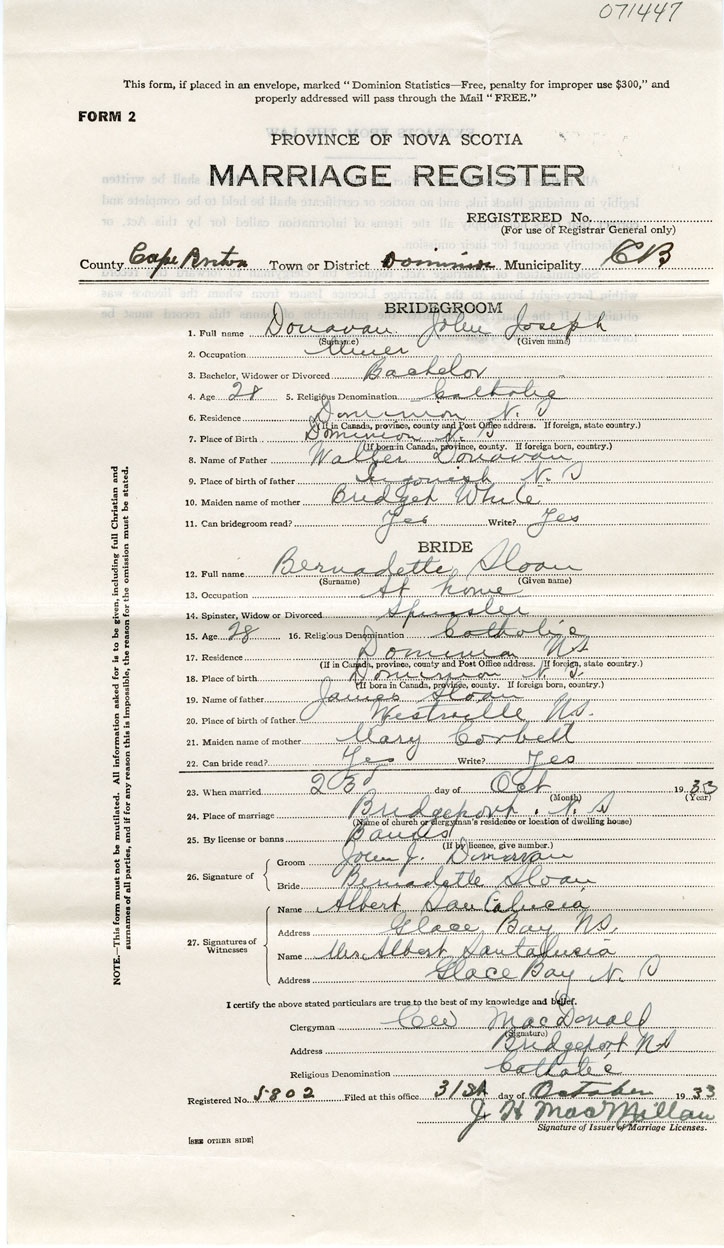 071447
This form, if placed in an envelope, marked "Dominion Statistics—Free, penalty for improper use $300," and
properly addressed will pass through the Mail "FREE."
FORM 2
PROVINCE OF NOVA SCOTIA
MARRIAGE REGISTER
REGISTERED No.
(For use of Registrar General only)
County Cape Breton Town or District Dominion Municipality CB
BRIDEGROOM
1. Full name Donavan John Joseph
(Surname) (Given name)
2. Occupation Miner
3. Bachelor, Widower or Divorced Bachelor
4. Age 28 5. Religious Denomination Catholic
6. Residence Dominion N. S
(If in Canada, province, county and Post Office address. If foreign, state country.)
7. Place of Birth Dominion N. S
(If born in Canada, province, county. If foreign born, country.)
8. Name of Father Walter Donavan
9. Place of birth of father Ingonish N. S
10. Maiden name of mother Bridget White
11. Can bridegroom read? Yes Write? Yes
BRIDE
12. Full name Bernadette Sloan
(Surname) (Given name)
13. Occupation At home
14. Spinster, Widow or Divorced Spinster
15. Age 28 16. Religious Denomination Catholic
17. Residence Dominion NS
(If in Canada, province, county and Post Office address. If foreign, state country.)
18. Place of birth Dominion N. S.
(If born in Canada, province, county. If foreign born, country.)
19. Name of father James Sloan
20. Place of birth of father Westville NS.
21. Maiden name of mother Mary Corbett
22. Can bride read? Yes Write? Yes
23. When married 23d day of Oct 1933
(Month) (Year)
24. Place of marriage Bridgeport. N. S
(Name of church or clergyman's residence or location of dwelling house)
25. By license or banns Banns
(If by licence, give number.)
26. Signature of
Groom John J. Donovan
Bride Bernadette Sloan
27. Signatures of Witnesses
Name Albert SanTalucia
Address Glace Bay NS.
Name Mrs Albert Santalucia
Address Glace Bay N. S
I certify the above stated particulars are true to the best of my knowledge and belief.
Clergyman MacDonald
(Signature)
Address Bridgeport NS
Religious Denomination Catholic
Registered No. 5802 Filed at this office 31st day of October 1933
J H MacMillan
Signature of Issuer of Marriage Licenses.
[SEE OTHER SIDE]
NOTE.—This form must not be mutilated. All information asked for is to be given, including full Christian and
surnames of all parties, and if for any reason this is impossible, the reason for the omission must be stated.